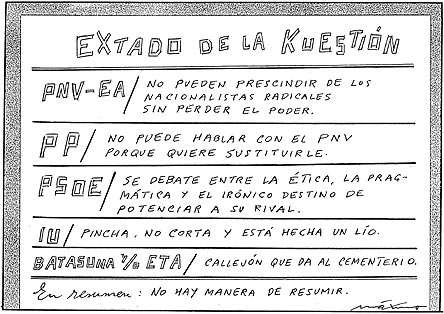 EXTADO DE LA KUESTIÓN
PNV-EA/ NO PUEDEN PRESCINDIR DE LOS
NACIONALISTAS RADICALES
SIN PERDER EL PODER.
PP/ NO PUEDE HABLAR CON EL PNV
PORQUE QUIERE SUSTITUIRLE.
PSOE/ SE DEBATE ENTRE LA ÉTICA, LA PRAG-
MÁTICA Y EL IRÓNICO DESTINO DE
POTENCIAR A SU RIVAL.
IU/ PINCHA, NO CORTA Y ESTÁ HECHA UN LÍO.
BATASUNA Y/O ETA/ CALLEJÓN QUE DA AL CEMENTERIO.
En resumen: NO HAY MANERA DE RESUMIR.
máximo